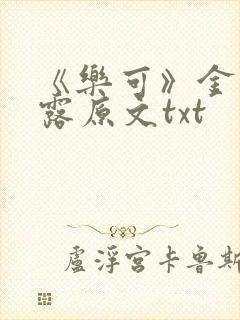 《樂可》金
露原文txt
盧浮宮卡魯斯